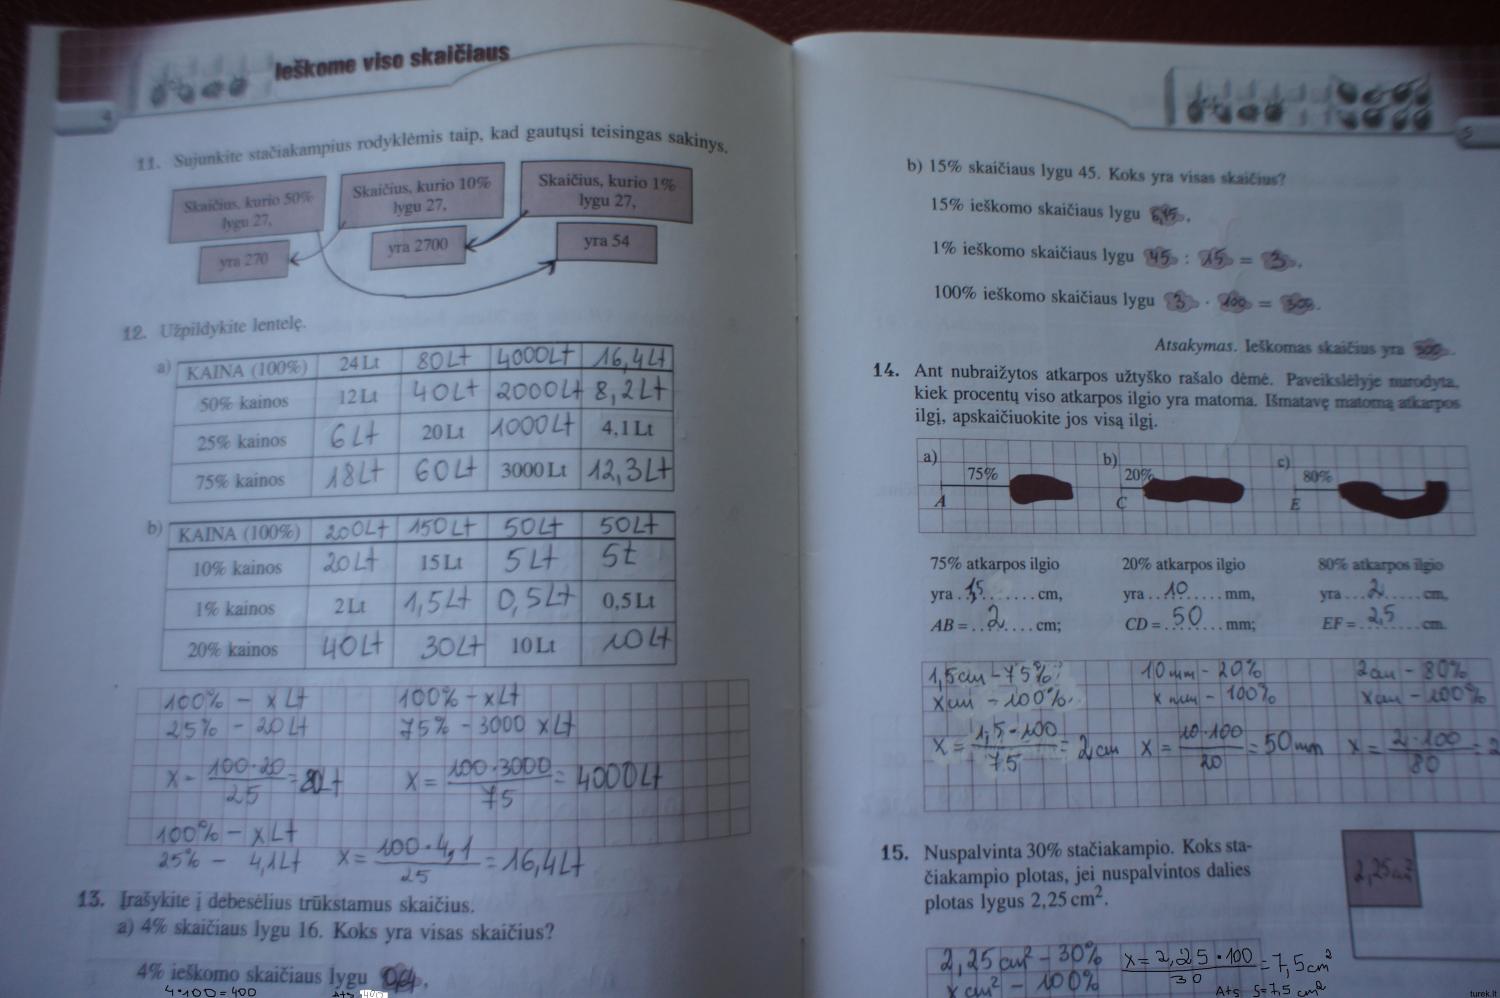 4
Ieškome viso skaičiaus
11. Sujunkite stačiakampius rodyklėmis taip, kad gautųsi teisingas sakinys.
Skaičius, kurio 50% lygu 27,
Skaičius, kurio 10% lygu 27,
Skaičius, kurio 1% lygu 27,
yra 270
yra 2700
yra 54
12. Užpildykite lentelę.
a) KAINA (100%) 24 Lt 80Lt 4000Lt 16,4Lt
50% kainos 12 Lt 40Lt 2000Lt 8,2Lt
25% kainos 6Lt 20 Lt 1000Lt 4,1 Lt
75% kainos 18Lt 60Lt 3000 Lt 12,3Lt
b) KAINA (100%) 200Lt 150Lt 50Lt 50Lt
10% kainos 20Lt 15 Lt 5Lt 5t
1% kainos 2 Lt 1,5Lt 0,5Lt 0,5 Lt
20% kainos 40Lt 30Lt 10 Lt 10Lt
100% - x Lt 100% - xLt
25% - 20Lt 75% - 3000 xLt
x - 100·20 / 25 = 80Lt x = 100·3000 / 75 = 4000Lt
100% - xLt
25% - 4,1Lt x = 100·4,1 / 25 = 16,4Lt
13. Įrašykite į debesėlius trūkstamus skaičius.
a) 4% skaičiaus lygu 16. Koks yra visas skaičius?
4% ieškomo skaičiaus lygu
4·100=400
5
b) 15% skaičiaus lygu 45. Koks yra visas skaičius?
15% ieškomo skaičiaus lygu
1% ieškomo skaičiaus lygu 45 : 15 = 3.
100% ieškomo skaičiaus lygu 3 · 100 = 300.
Atsakymas. Ieškomas skaičius yra 300.
14. Ant nubraižytos atkarpos užtyško rašalo dėmė. Paveikslėlyje nurodyta,
kiek procentų viso atkarpos ilgio yra matoma. Išmatavę matomą atkarpos
ilgį, apskaičiuokite jos visą ilgį.
a) 75% A
b) 20% C
c) 80% E
75% atkarpos ilgio 20% atkarpos ilgio 80% atkarpos ilgio
yra 1,5 cm, yra 10 mm, yra 2 cm,
AB = 2 cm; CD = 50 mm; EF = 2,5 cm.
1,5cm - 75% 10mm - 20% 2cm - 80%
xcm - 100% x mm - 100% xcm - 100%
x = 1,5·100 / 75 = 2cm x = 10·100 / 20 = 50mm x = 2·100 / 80 = 2
15. Nuspalvinta 30% stačiakampio. Koks sta-
čiakampio plotas, jei nuspalvintos dalies
plotas lygus 2,25 cm².
2,25cm²
2,25cm² - 30% x = 2,25·100 / 30 = 7,5cm²
xcm² - 100% Ats S=7,5 cm²
turek.lt